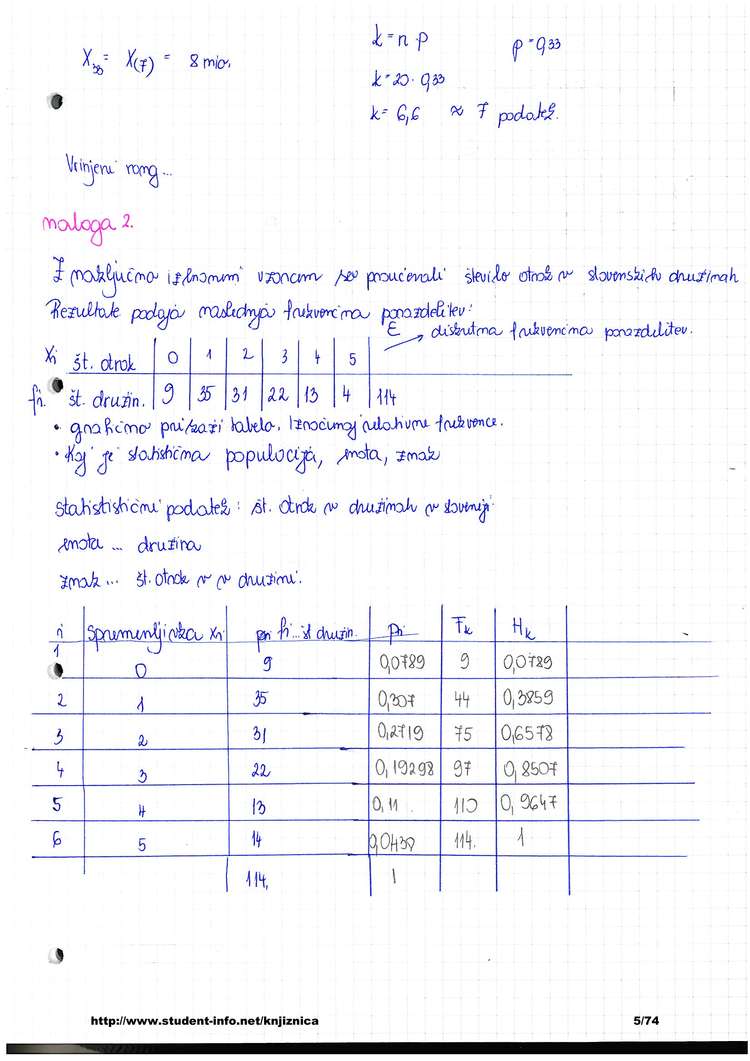 k = n · p p = 0,33
X₃₃ = X(7) = 8 mio.
k = 20 · 0,33
k = 6,6 ≈ 7 podatek.
Vrinjeni rang...
naloga 2.
Z naključno izbranim vzorcem so proučevali število otrok v slovenskih družinah
Rezultate podaja naslednja frekvenčna porazdelitev:
→ diskretna frekvenčna porazdelitev.
xi št. otrok 0 1 2 3 4 5
fi. št. družin. 9 35 31 22 13 4 114
• grafično prikaži tabelo, izračunaj relativne frekvence.
• Kaj je statistična populacija, enota, znak
Statististični podatek: št. otrok v družinah v Sloveniji
enota ... družina
znak ... št. otrok v v družini.
i spremenljivka xi fi ... št družin. pi Fk Hk
1 0 9 0,0789 9 0,0789
2 1 35 0,307 44 0,3859
3 2 31 0,2719 75 0,6578
4 3 22 0,19298 97 0,8507
5 4 13 0,11 110 0,9647
6 5 14 0,0439 114. 1
114, 1
http://www.student-info.net/knjiznica 5/74